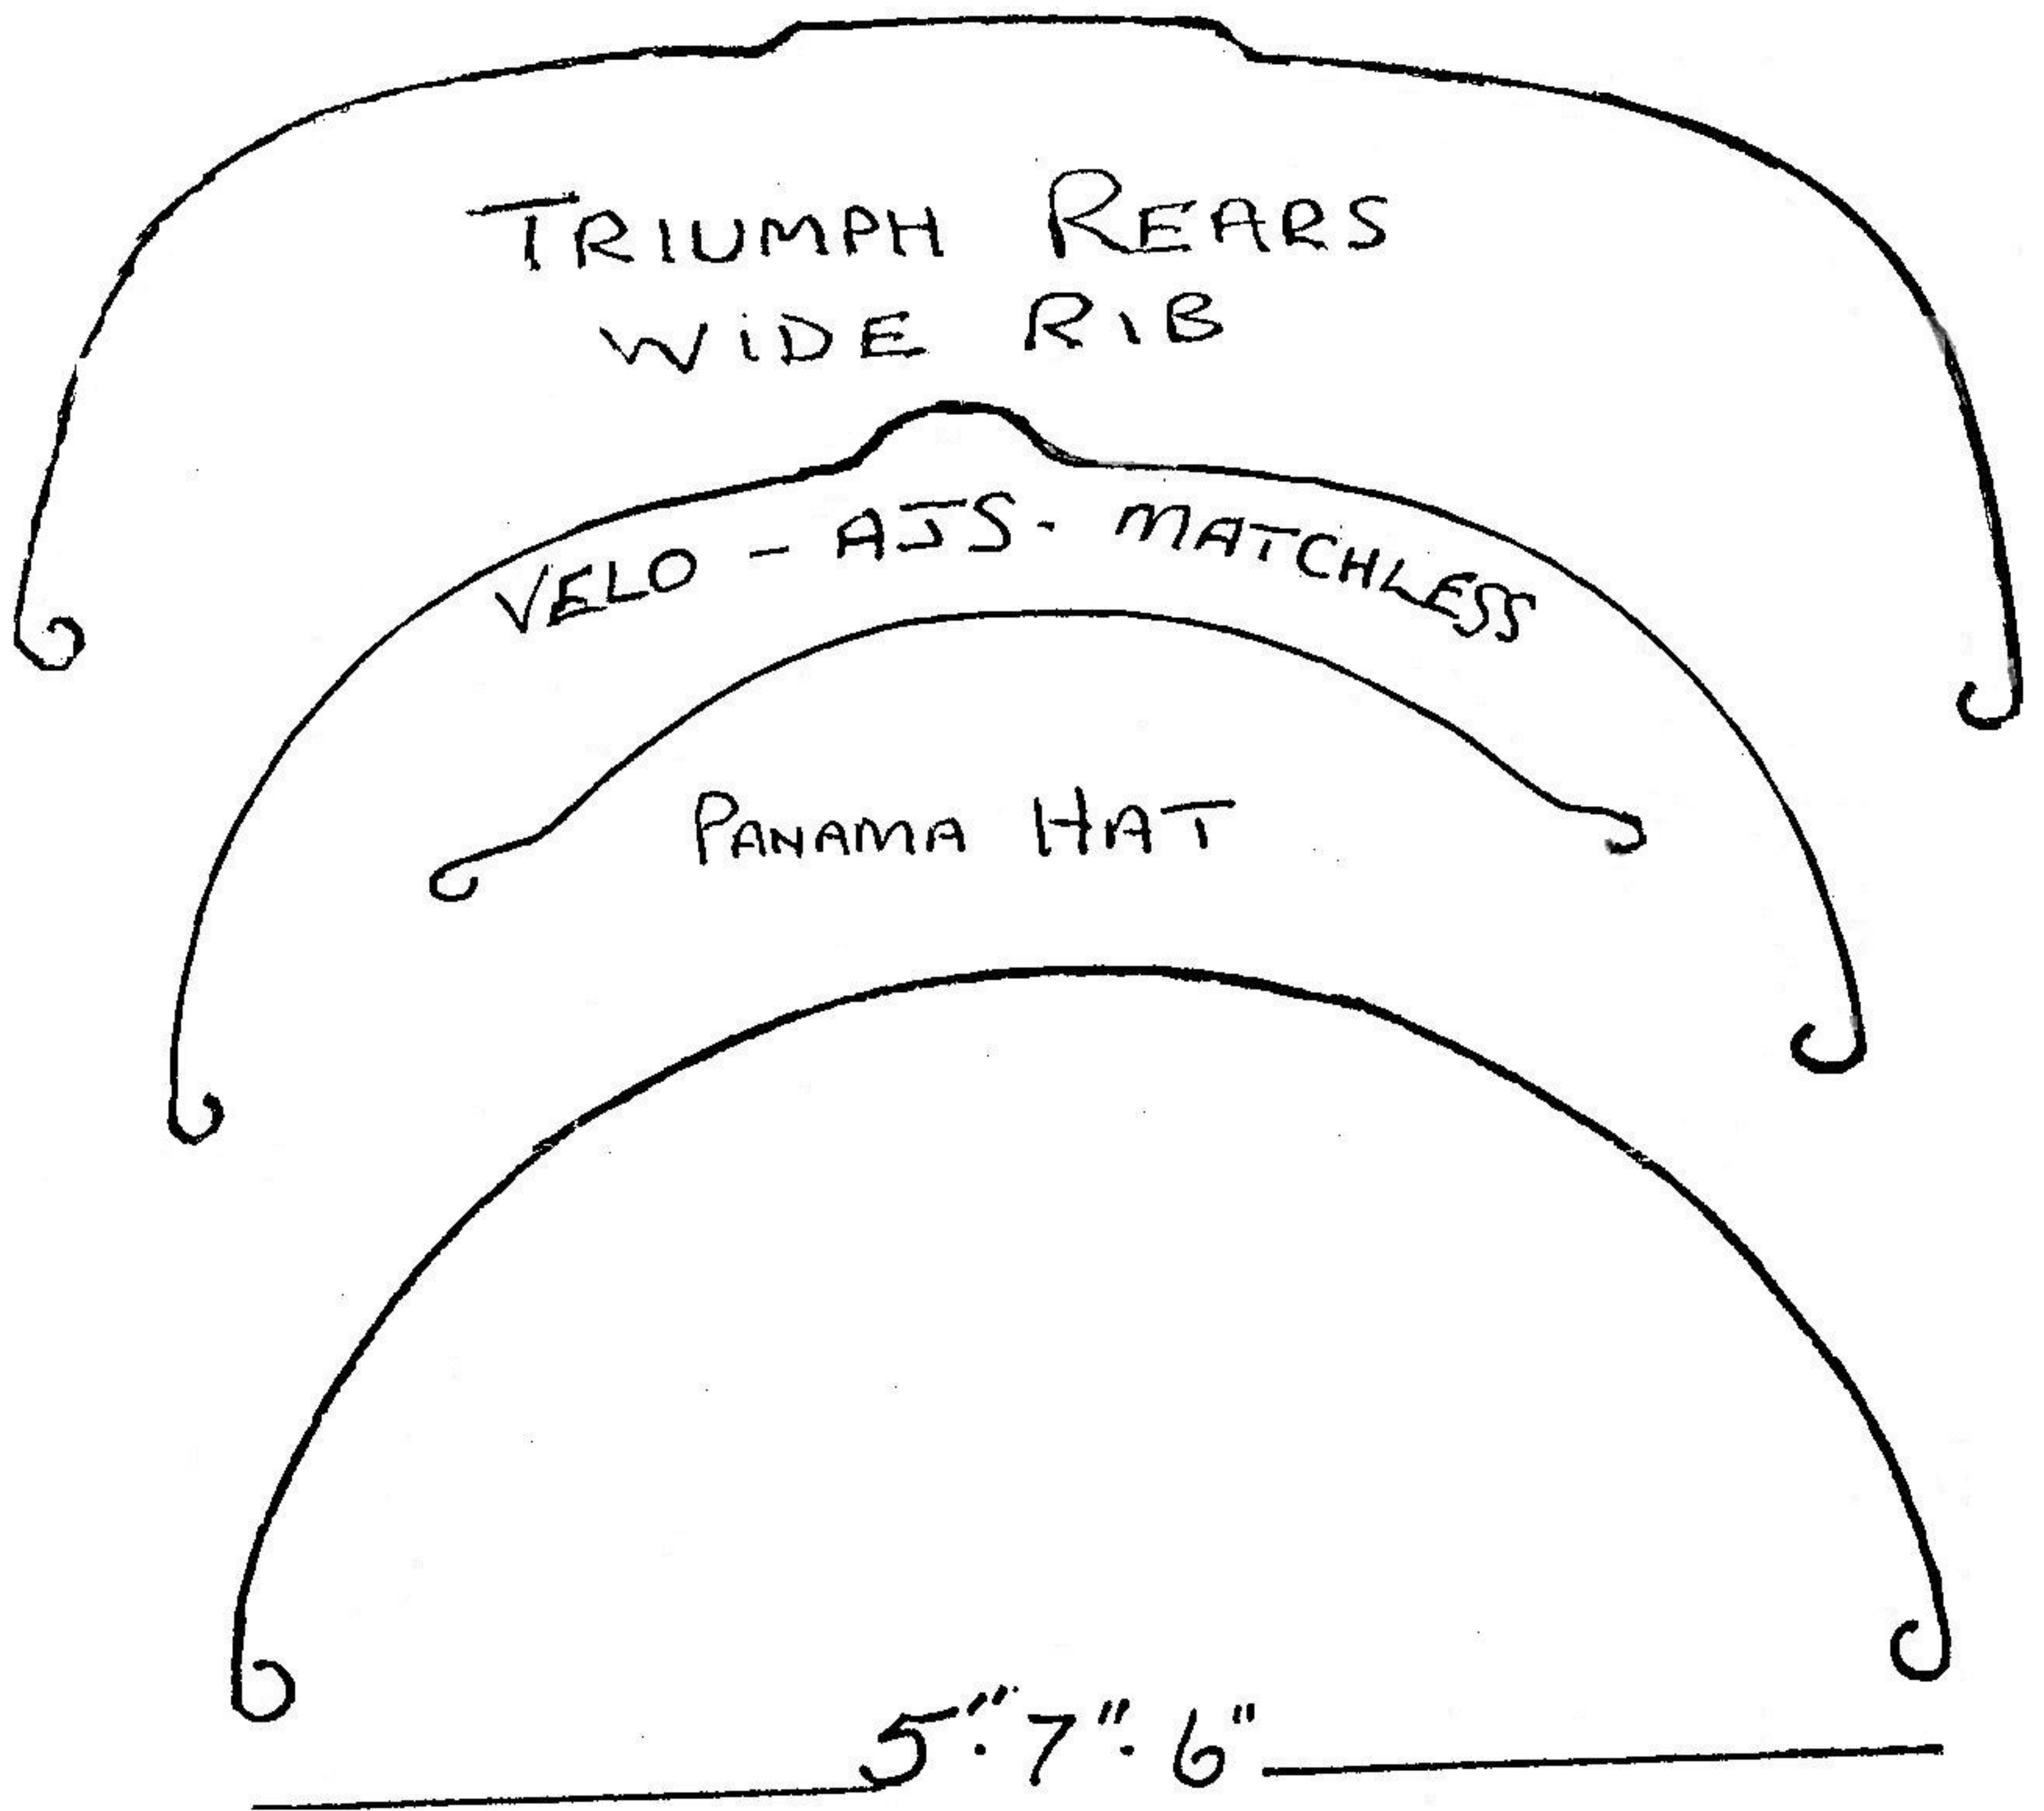 TRIUMPH REARS
WIDE RIB
VELO - AJS. MATCHLESS
PANAMA HAT
5". 7". 6"